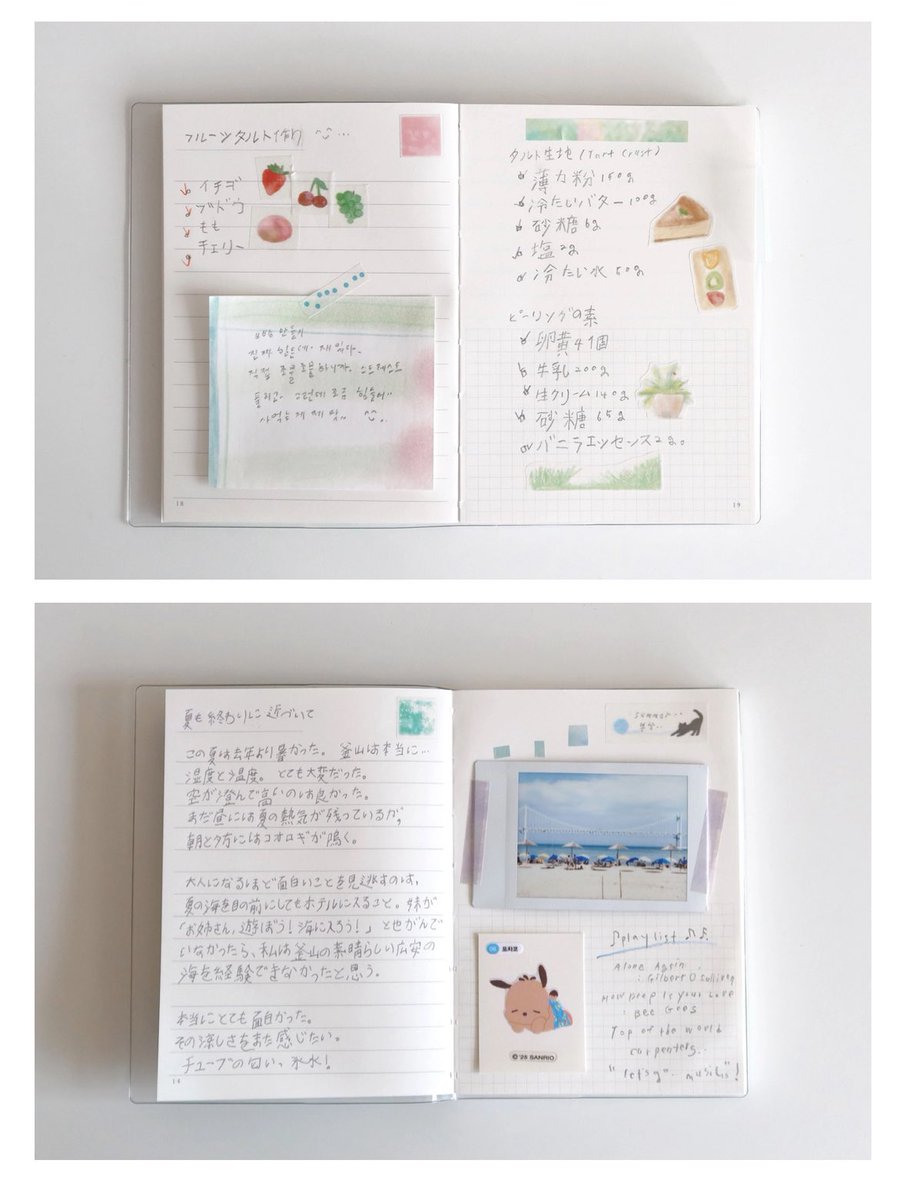 フルーツタルト作り ^^...
イチゴ
ブドウ
もも
チェリー
만들기
진짜 힘든데 재밌다.
직접 조물조물하니까. 스트레스도
풀리고. 그런데 조금 힘들어..
사먹는게 제 맛..
18
タルト生地 (Tart Crust)
薄力粉 150g
冷たいバター 100g
砂糖 6g
塩 2g
冷たい水 50g
ピーリングの素
卵黄 4個
牛乳 200g
生クリーム 140g
砂糖 65g
バニラエッセンス 2g。
19
夏も終わりに近づいて
この夏は去年より暑かった。 釜山は本当に…
湿度と温度。とても大変だった。
空が澄んで高いのは良かった。
まだ昼には夏の熱気が残っているが,
朝と夕方にはコオロギが鳴く。
大人になるほど面白いことを見逃すのは,
夏の海を目の前にしてもホテルに入ること。妹が
「お姉さん, 遊ぼう! 海に入ろう!」とせがんで
いなかったら, 私は釜山の素晴らしい広安の
海を経験できなかったと思う。
本当にとても面白かった。
その涼しさをまた感じたい。
チューブの匂い。氷水!
14
SUMMER
♪playlist ♪♬
Alone Again
: Gilbert O'Sullivan
How Deep Is Your Love
: Bee Gees
Top of the World
carpenters.
"let's go. music"!
포차코
© '25 SANRIO